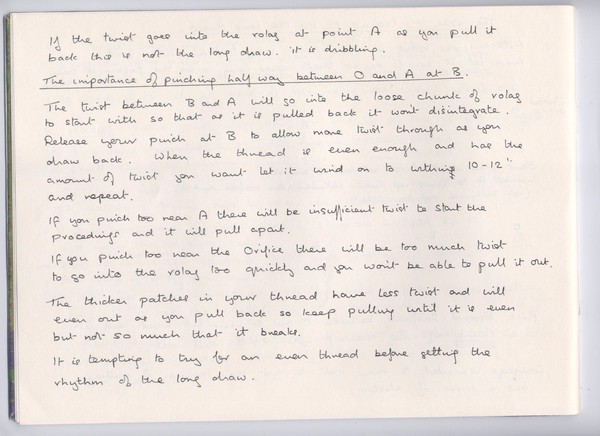 If the twist goes into the rolag at point A as you pull it
back this is not the long draw. it is dribbling.
The importance of pinching half way between O and A at B.
The twist between B and A will go into the loose chunk of rolag
to start with so that as it is pulled back it won't disintegrate.
Release your pinch at B to allow more twist through as you
draw back. When the thread is even enough and has the
amount of twist you want let it wind on to within 10-12"
and repeat.
If you pinch too near A there will be insufficient twist to start the
procedings and it will pull apart.
If you pinch too near the Orifice there will be too much twist
to go into the rolag too quickly and you won't be able to pull it out.
The thicker patches in your thread have less twist and will
even out as you pull back so keep pulling until it is even
but not so much that it breaks.
It is tempting to try for an even thread before getting the
rhythm of the long draw.